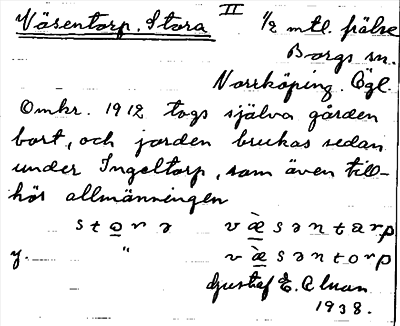 Väsentorp, Stora II 1/2 mtl. frälse
Borgs sn.
Norrköping. Ögl.
Omkr. 1912 togs själva gården
bort, och jorden brukas sedan
under Ingeltorp, som även till-
hör allmänningen
s t o r ə v æ̀ s ə n t a r p
y. " v æ̀ s ə n t o r p
Gustaf E.
1938.